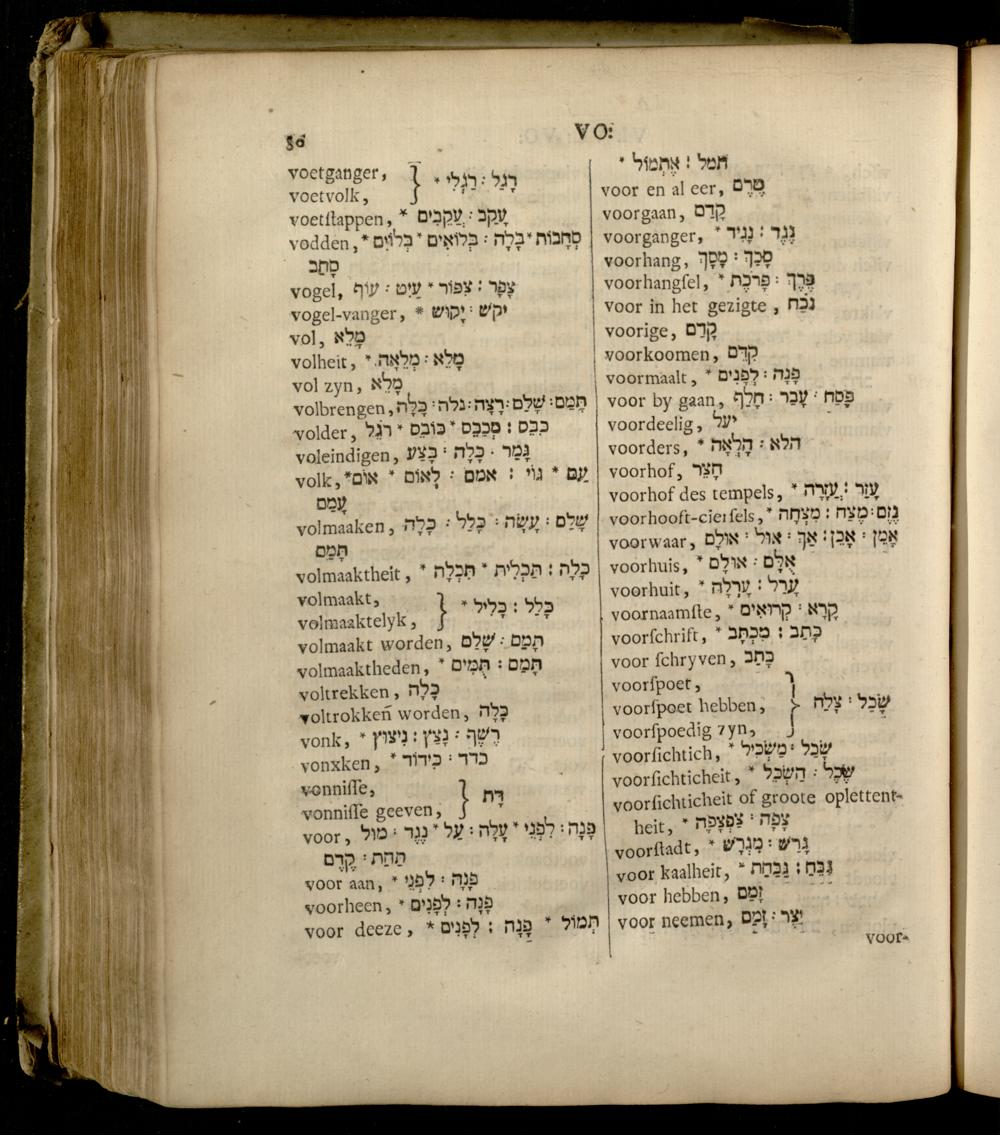 80
VO:
voetganger,
voetvolk, } רָגַל : רַגְלִי *
voetſtappen, * עָקַב : עֲקֵבִים
vodden, * סְחָבוֹת * בָּלָה : בְּלוֹאִים * בְּלוֹיִם
סָחַב
vogel, צָפָר : צִפּוֹר * עַיִט : עוֹף
vogel-vanger, * יקש : יָקוּשׁ
vol, מָלֵא
volheit, * מָלֵא : מְלֵאָה
vol zyn, מָלֵא
volbrengen, תָּמַם : שָׁלַם : רָצָה : גלה : כָּלָה
volder, כבס : מְכַבֵּס * כּוֹבֵס * רֹגֵל
voleindigen, גָּמַר : כָּלָה : בָּצַע
volk, * עַם * גּוֹי : אמם : לְאוֹם * אוֹם
עָמַם
volmaaken, שָׁלַם : עָשָׂה : כָּלַל : כָּלָה
תָּמַם
volmaaktheit, * כָּלָה : תַּכְלִית * תִּכְלָה
volmaakt,
volmaaktelyk, } כָּלַל : כָּלִיל *
volmaakt worden, תָּמַם : שָׁלַם
volmaaktheden, * תָּמַם : תֻּמִּים
voltrekken, כָּלָה
voltrokken̄ worden, כָּלָה
vonk, * רֶשֶׁף : נָצַץ : נִיצוֹץ
vonxken, * כדד : כִּידוֹד
vonniſſe,
vonniſſe geeven, } דָּת
voor, פָּנָה : לִפְנֵי * עָלָה : עַל * נֶגֶד : מול
תַּחַת : קֶדֶם
voor aan, * פָּנָה : לִפְנֵי
voorheen, * פָּנָה : לְפָנִים
voor deeze, * תְּמוֹל * פָּנָה : לְפָנִים
תמל : אֶתְמוֹל *
voor en al eer, טֶרֶם
voorgaan, קָדַם
voorganger, * נֶגֶד : נָגִיד
voorhang, סָכַךְ : מָסָךְ
voorhangſel, * פֶּרֶךְ : פָּרֹכֶת
voor in het gezigte, נֹכַח
voorige, קָדַם
voorkoomen, קִדֵּם
voormaalt, * פָּנָה : לְפָנִים
voor by gaan, פָּסַח : עָבַר : חָלַף
voordeelig, יעל
voorders, * הלא : הָלְאָה
voorhof, חָצֵר
voorhof des tempels, * עָזַר : עֲזָרָה
voorhooft-cierſels, * נֶזֶם : מֶצַח : מִצְחָה
voorwaar, אָמֵן : אָכֵן : אַךְ : אול : אוּלָם
voorhuis, * אֻלָּם : אוּלָם
voorhuit, * עָרֵל : עָרְלָה
voornaamſte, * קָרָא : קְרוּאִים
voorſchrift, * כָּתַב : מִכְתָּב
voor ſchryven, כָּתַב
voorſpoet,
voorſpoet hebben, } שָׂכַל : צלח
voorſpoedig zyn,
voorſichtich, * שָׂכַל : מַשְׂכִּיל
voorſichticheit, * שֶׂכֶל : הַשְׂכֵּל
voorſichticheit of groote oplettent-
heit, * צָפָה : צַפְצָפָה
voorſtadt, * גָּרַשׁ : מִגְרָשׁ
voor kaalheit, * גִּבֵּחַ : גַּבַּחַת
voor hebben, זָמַם
voor neemen, יֵצֶר : זָמַם
voor-